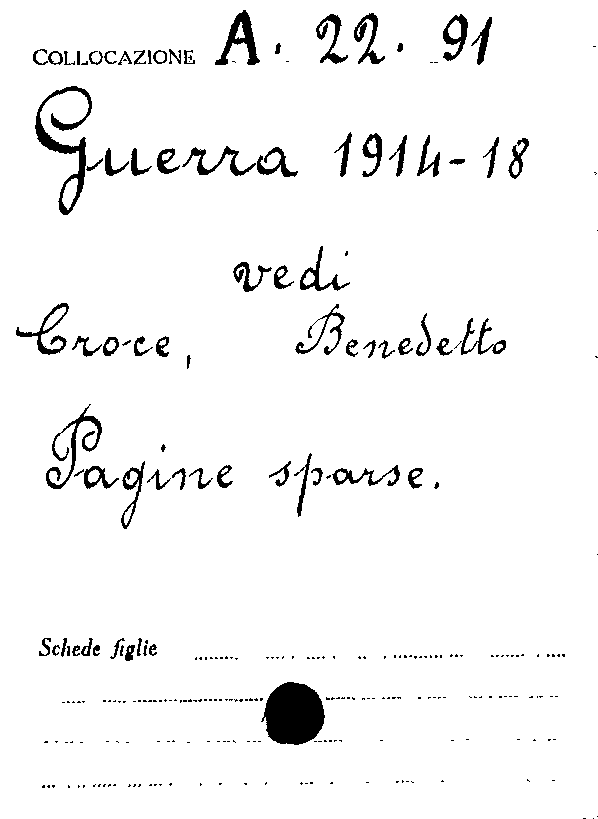 COLLOCAZIONE A. 22. 91
Guerra 1914-18
vedi
Croce, Benedetto
Pagine sparse.
Schede figlie